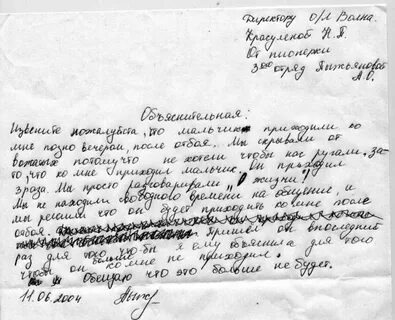 Директору О/Л Волна.
Красуленой Н.П.
От пионерки
3его отряд Пыжьяновой
А.О.
Объяснительная:
Извените пожалуйста, что мальчик приходили ко
мне поздно вечером, после отбоя. Мы скрывали от
вожатых потому что не хотели чтобы нас ругали, за-
то, что ко мне приходил мальчик. Он приходил
3 раза. Мы просто разговаривали „О жизни"!
Мы не находили свободного времени на общение, и
мы решили что он будет приходить ко мне после
отбоя. Пришёл он впоследний
раз для того что бы я ему объяснила для того
чтобы он больше ко мне не приходил.
Обещаю что это больше не будет.
11.06.2004 Пыж